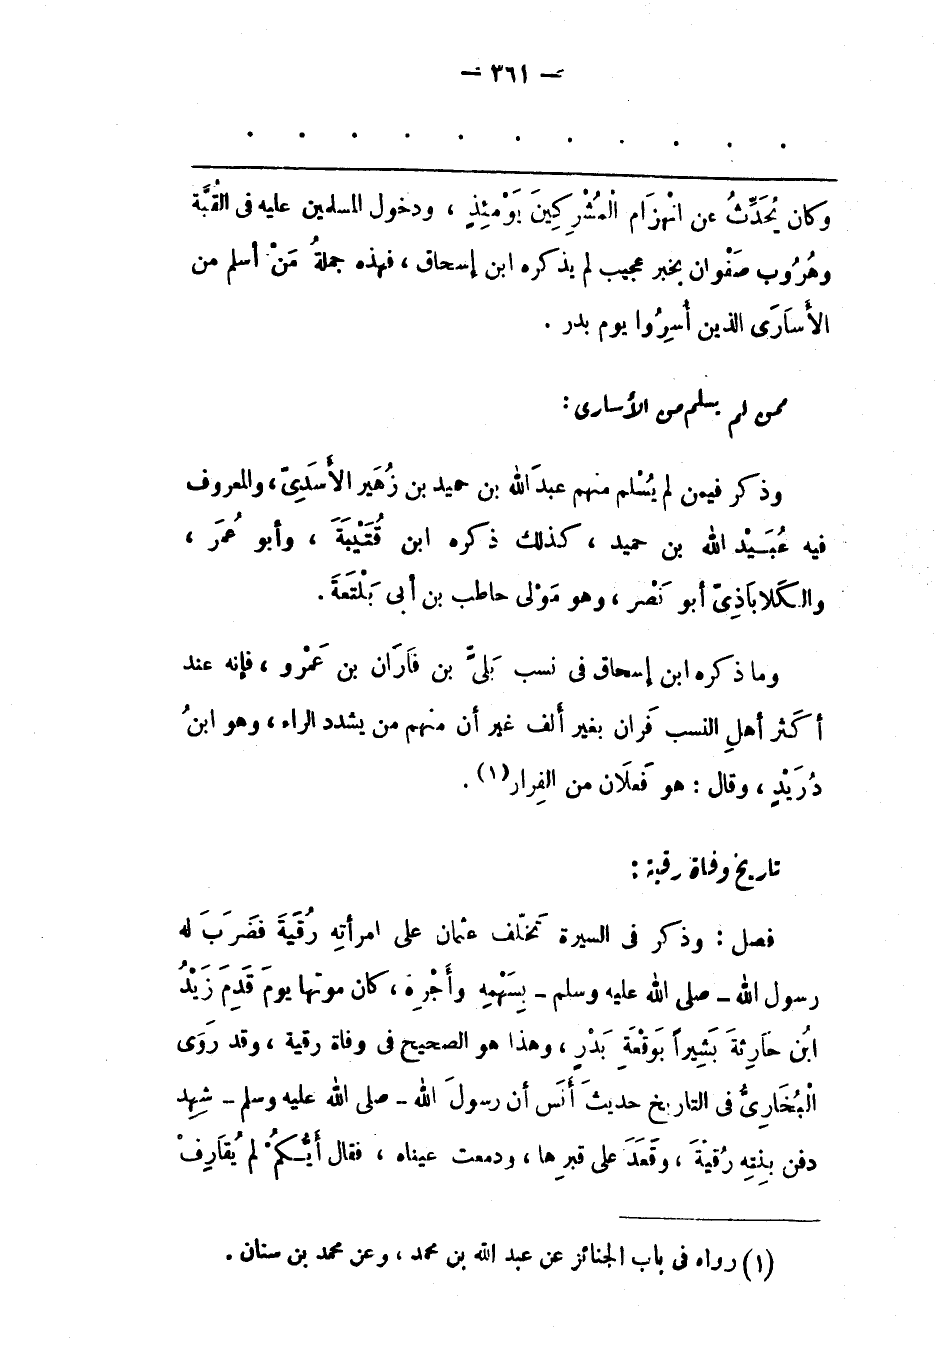 — ٣٦١ —
. . . . . . . . . . .
وكان يُحَدِّثُ عن انْهِزَام الْمُشْرِكِينَ يَوْمئِذٍ ، ودخول المسلمين عليه فى الْقُبَّة
وهُرُوب صَفْوان بخبر عجيب لم يذكره ابن إسحاق ، فهذه جملةُ مَنْ أسلم من
الأُسَارَى الذين أُسِرُوا يوم بدر .
ممن لم يسلم من الأسارى :
وذكر فيمن لم يُسْلم منهم عبدَ الله بن حميد بن زُهَير الأَسَدِىّ ، والمعروف
فيه عُبَـيْد الله بن حميد ، كذلك ذكره ابن قُتَيْبَةَ ، وأبو عُمَرَ ،
والكَلاباَذِىّ أبو نَصْر ، وهو مَوْلى حاطب بن أبى بَلْتَعَةَ .
وما ذكره ابن إسحاق فى نسب بَلِىِّ بن فَارَان بن عَمْرو ، فإنه عند
أكثر أهلِ النسب فَران بغير ألف غير أن منهم من يشدد الراء ، وهو ابنُ
دُرَيْدٍ ، وقال : هو فَعلَان من الفِرار (١) .
تاريخ وفاة رقية :
فصل : وذكر فى السيرة تَخلّف عثمان على امرأتِه رُقَيةَ فضَرَبَ له
رسول الله ــ صلى الله عليه وسلم ــ بِسَهْمِهِ وأَجْرِه ، كان موتها يومَ قَدِمَ زَيْدُ
ابُن حَارِثةَ بَشِيراً بَوقْعَةِ بَدْرٍ ، وهذا هو الصحيح فى وفاة رقية ، وقد رَوَى
الْبُخَارِىُّ فى التاريخ حديثَ أَنَس أن رسولَ الله ــ صلى الله عليه وسلم ــ شهِد
دفن بِنتِه رُقيْةَ ، وقَعَدَ على قبرِها ، ودمعت عيناه ، فقال أَيُّـكمُ لم يُقارِفْ
(١) رواه فى باب الجنائز عن عبد الله بن محمد ، وعن محمد بن سنان .